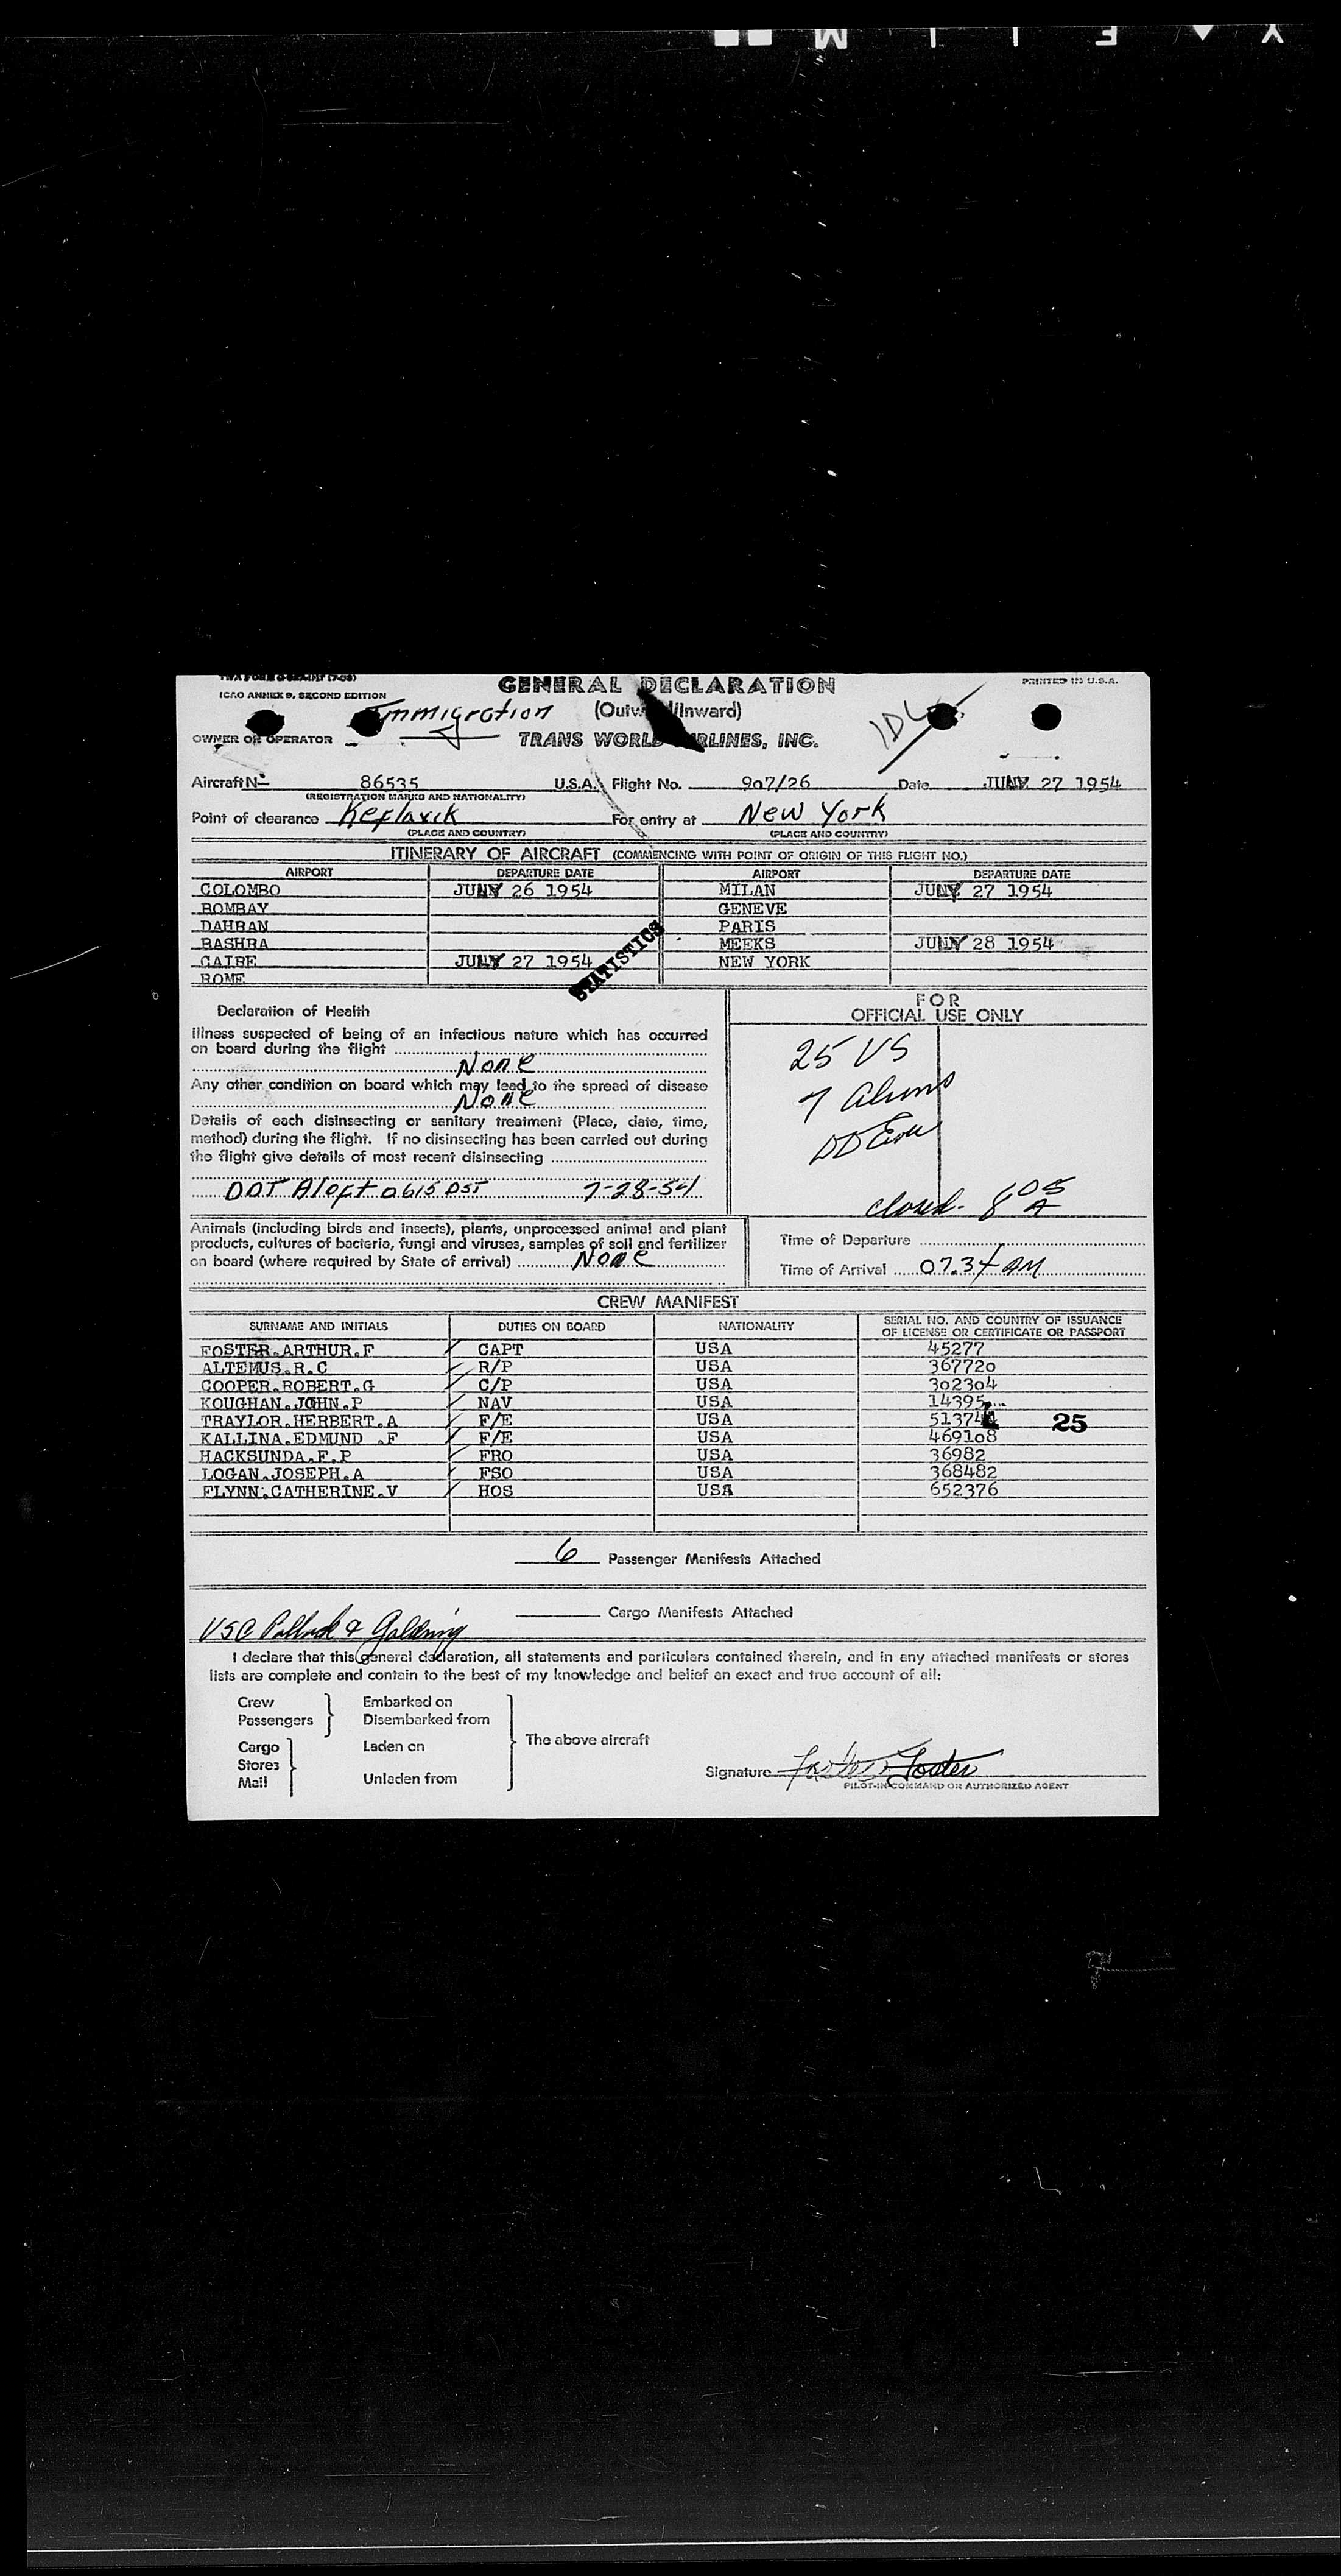 TWA FORM
ICAO ANNEX 9, SECOND EDITION
GENERAL DECLARATION
PRINTED IN U.S.A.
Immigration
(Outward/Inward)
OWNER OR OPERATOR
TRANS WORLD AIRLINES, INC.
Aircraft N- 86535 U.S.A. Flight No. 907/26 Date JULY 27 1954
(REGISTRATION MARKS AND NATIONALITY)
Point of clearance Keflavik For entry at New York
(PLACE AND COUNTRY) (PLACE AND COUNTRY)
ITINERARY OF AIRCRAFT (COMMENCING WITH POINT OF ORIGIN OF THIS FLIGHT NO.)
AIRPORT DEPARTURE DATE AIRPORT DEPARTURE DATE
COLOMBO JULY 26 1954 MILAN JULY 27 1954
BOMBAY GENEVE
DAHRAN PARIS
BASHRA MEEKS JULY 28 1954
CAIRE JULY 27 1954 NEW YORK
ROME
STATISTICS
Declaration of Health
Illness suspected of being of an infectious nature which has occurred
on board during the flight
None
Any other condition on board which may lead to the spread of disease
None
Details of each disinsecting or sanitary treatment (Place, date, time,
method) during the flight. If no disinsecting has been carried out during
the flight give details of most recent disinsecting
DDT Aloft 0615 DST 7-28-54
FOR
OFFICIAL USE ONLY
25 US
7 Aliens
closed - 8 05 A
Animals (including birds and insects), plants, unprocessed animal and plant
products, cultures of bacteria, fungi and viruses, samples of soil and fertilizer
on board (where required by State of arrival) None
Time of Departure
Time of Arrival 07.34 AM
CREW MANIFEST
SURNAME AND INITIALS DUTIES ON BOARD NATIONALITY SERIAL NO. AND COUNTRY OF ISSUANCE
OF LICENSE OR CERTIFICATE OR PASSPORT
FOSTER.ARTHUR.F CAPT USA 45277
ALTEMUS.R.C R/P USA 367720
COOPER.ROBERT.G C/P USA 302304
KOUGHAN.JOHN.P NAV USA 14395
TRAYLOR.HERBERT.A F/E USA 51374 25
KALLINA.EDMUND .F F/E USA 469108
HACKSUNDA.F.P FRO USA 36982
LOGAN.JOSEPH.A FSO USA 368482
FLYNN.CATHERINE.V HOS USA 652376
6 Passenger Manifests Attached
Cargo Manifests Attached
I declare that this general declaration, all statements and particulars contained therein, and in any attached manifests or stores
lists are complete and contain to the best of my knowledge and belief an exact and true account of all:
Crew Embarked on
Passengers Disembarked from
The above aircraft
Cargo Laden on
Stores
Mail Unladen from
Signature Foster
PILOT-IN-COMMAND OR AUTHORIZED AGENT